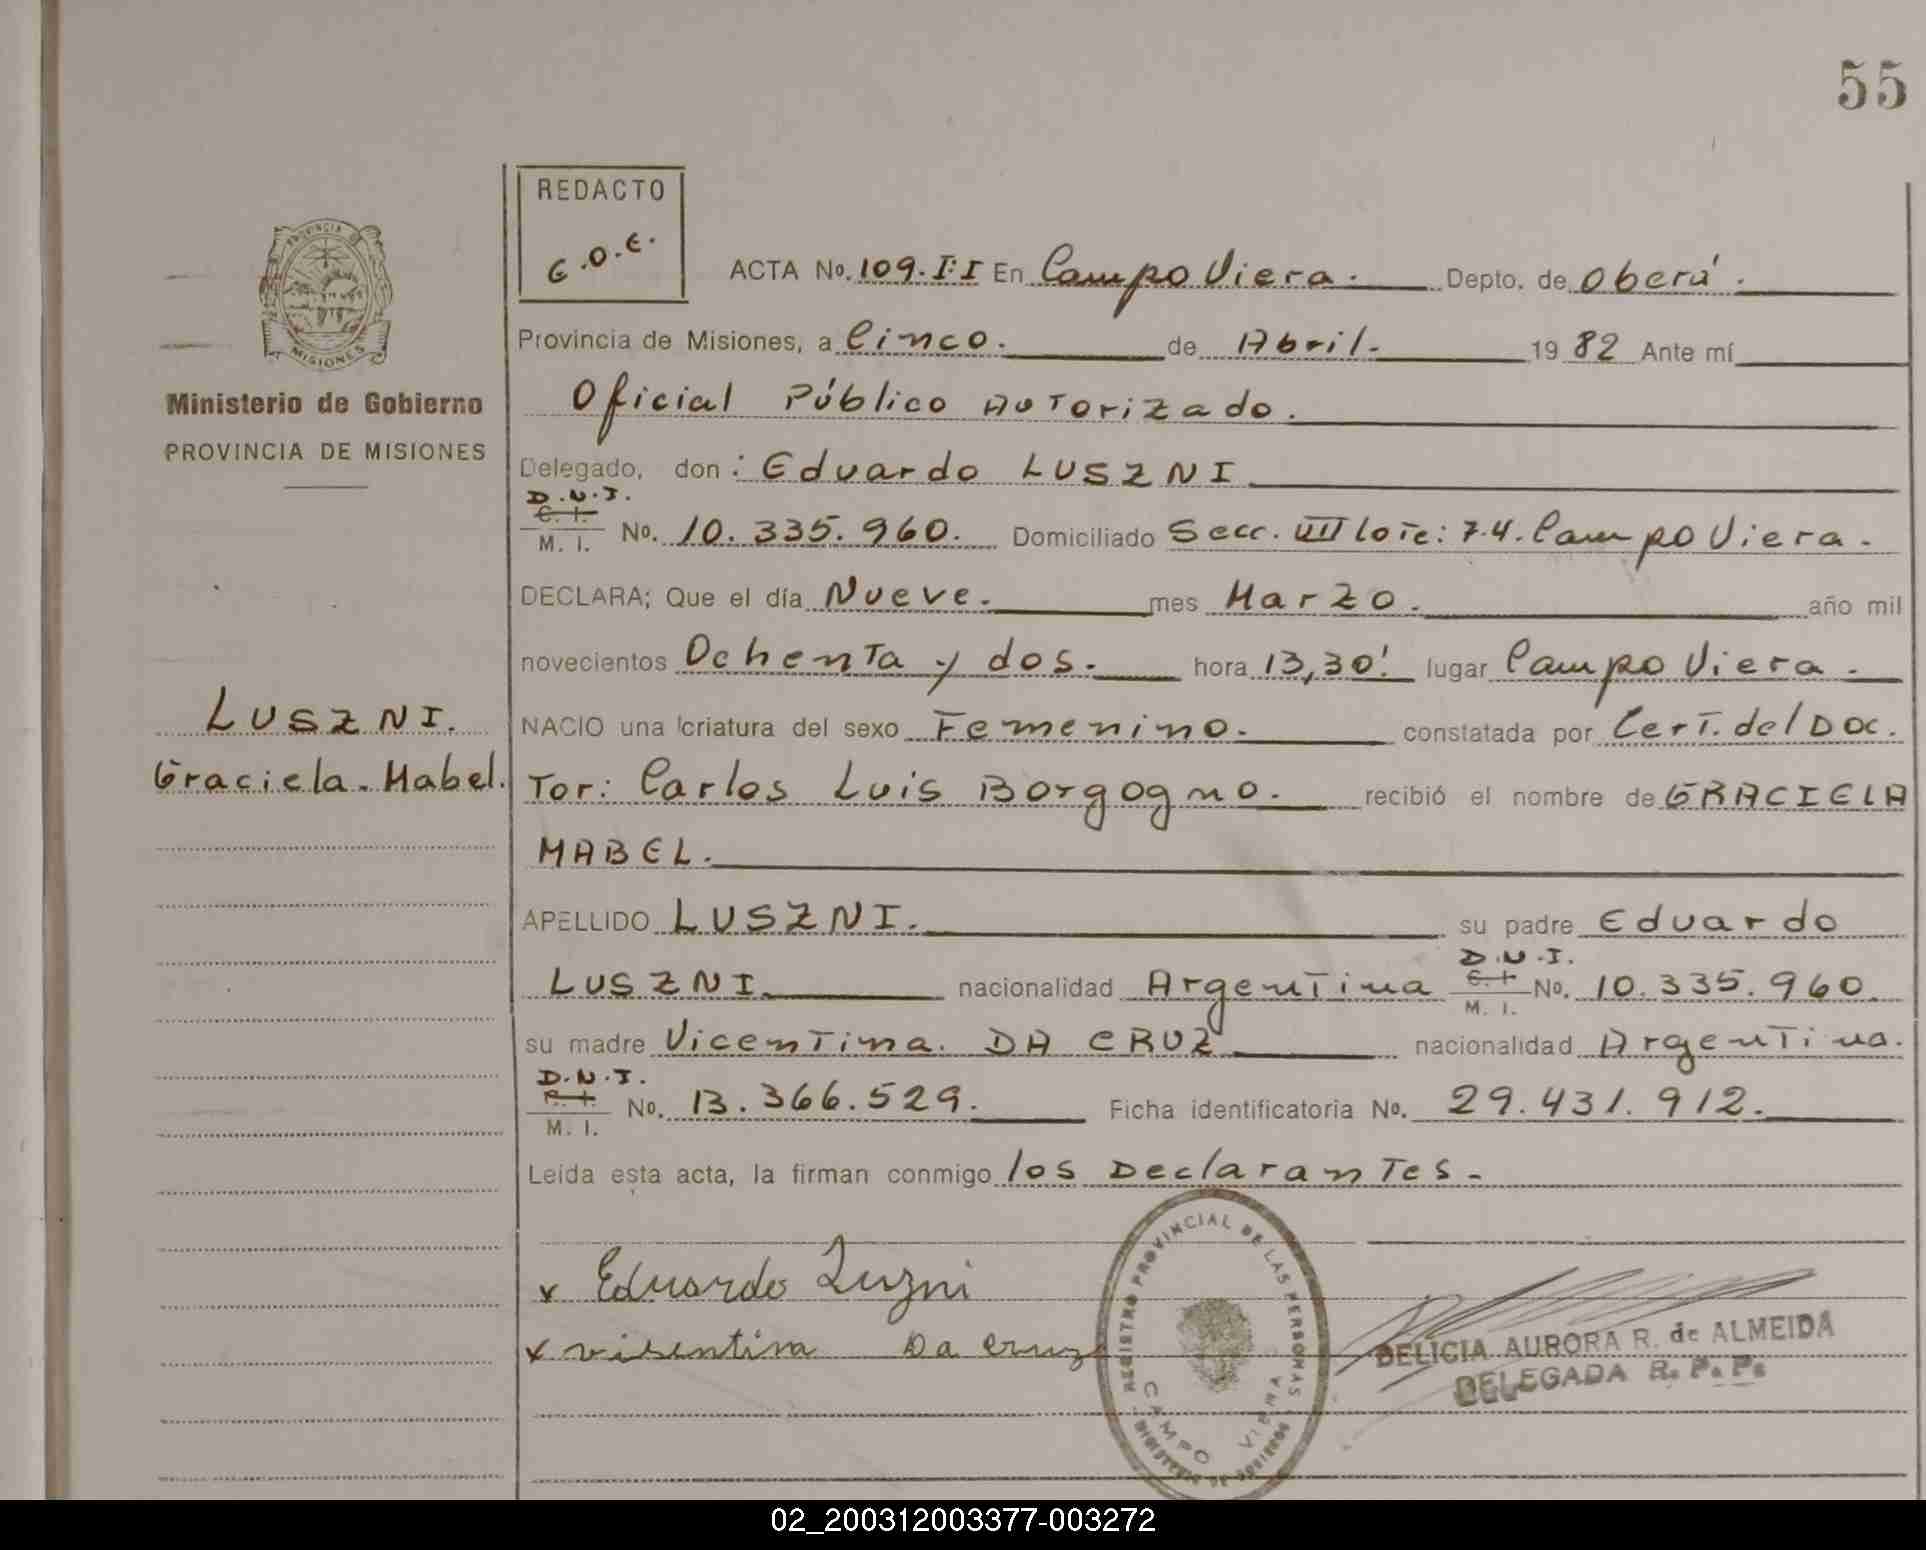 55
REDACTO
E.O.E.
ACTA No. 109.I:I En Campo Viera. Depto. de Oberá.
Provincia de Misiones, a Cinco. de Abril. 19 82 Ante mí
Oficial Público Autorizado.
Delegado, don: Eduardo LUSZNI
D.N.I.
C. I.
M. I.
No. 10.335.960. Domiciliado Secc. VII lote: 74. Campo Viera.
DECLARA; Que el día Nueve. mes Marzo. año mil
novecientos Ochenta y dos. hora 13,30' lugar Campo Viera.
NACIO una criatura del sexo Femenino. constatada por Cert. del Doc
Tor: Carlos Luis Borgogno. recibió el nombre de GRACIELA
MABEL.
APELLIDO LUSZNI. su padre Eduardo
D.N.I.
LUSZNI. nacionalidad Argentina C. I. No. 10.335.960
M. I.
su madre Vicentina. DA CRUZ nacionalidad Argentina.
D.N.I.
No. 13.366.529. Ficha identificatoria No. 29.431.912.
M. I.
Leída esta acta, la firman conmigo los Declarantes.
x Eduardo Luzni
x visentina Da cruz
REGISTRO PROVINCIAL DE LAS PERSONAS
CAMPO VIERA
DELICIA AURORA R. de ALMEIDA
DELEGADA R. P. P.
PROVINCIA DE
MISIONES
Ministerio de Gobierno
PROVINCIA DE MISIONES
LUSZNI.
Graciela. Mabel.
02_200312003377-003272